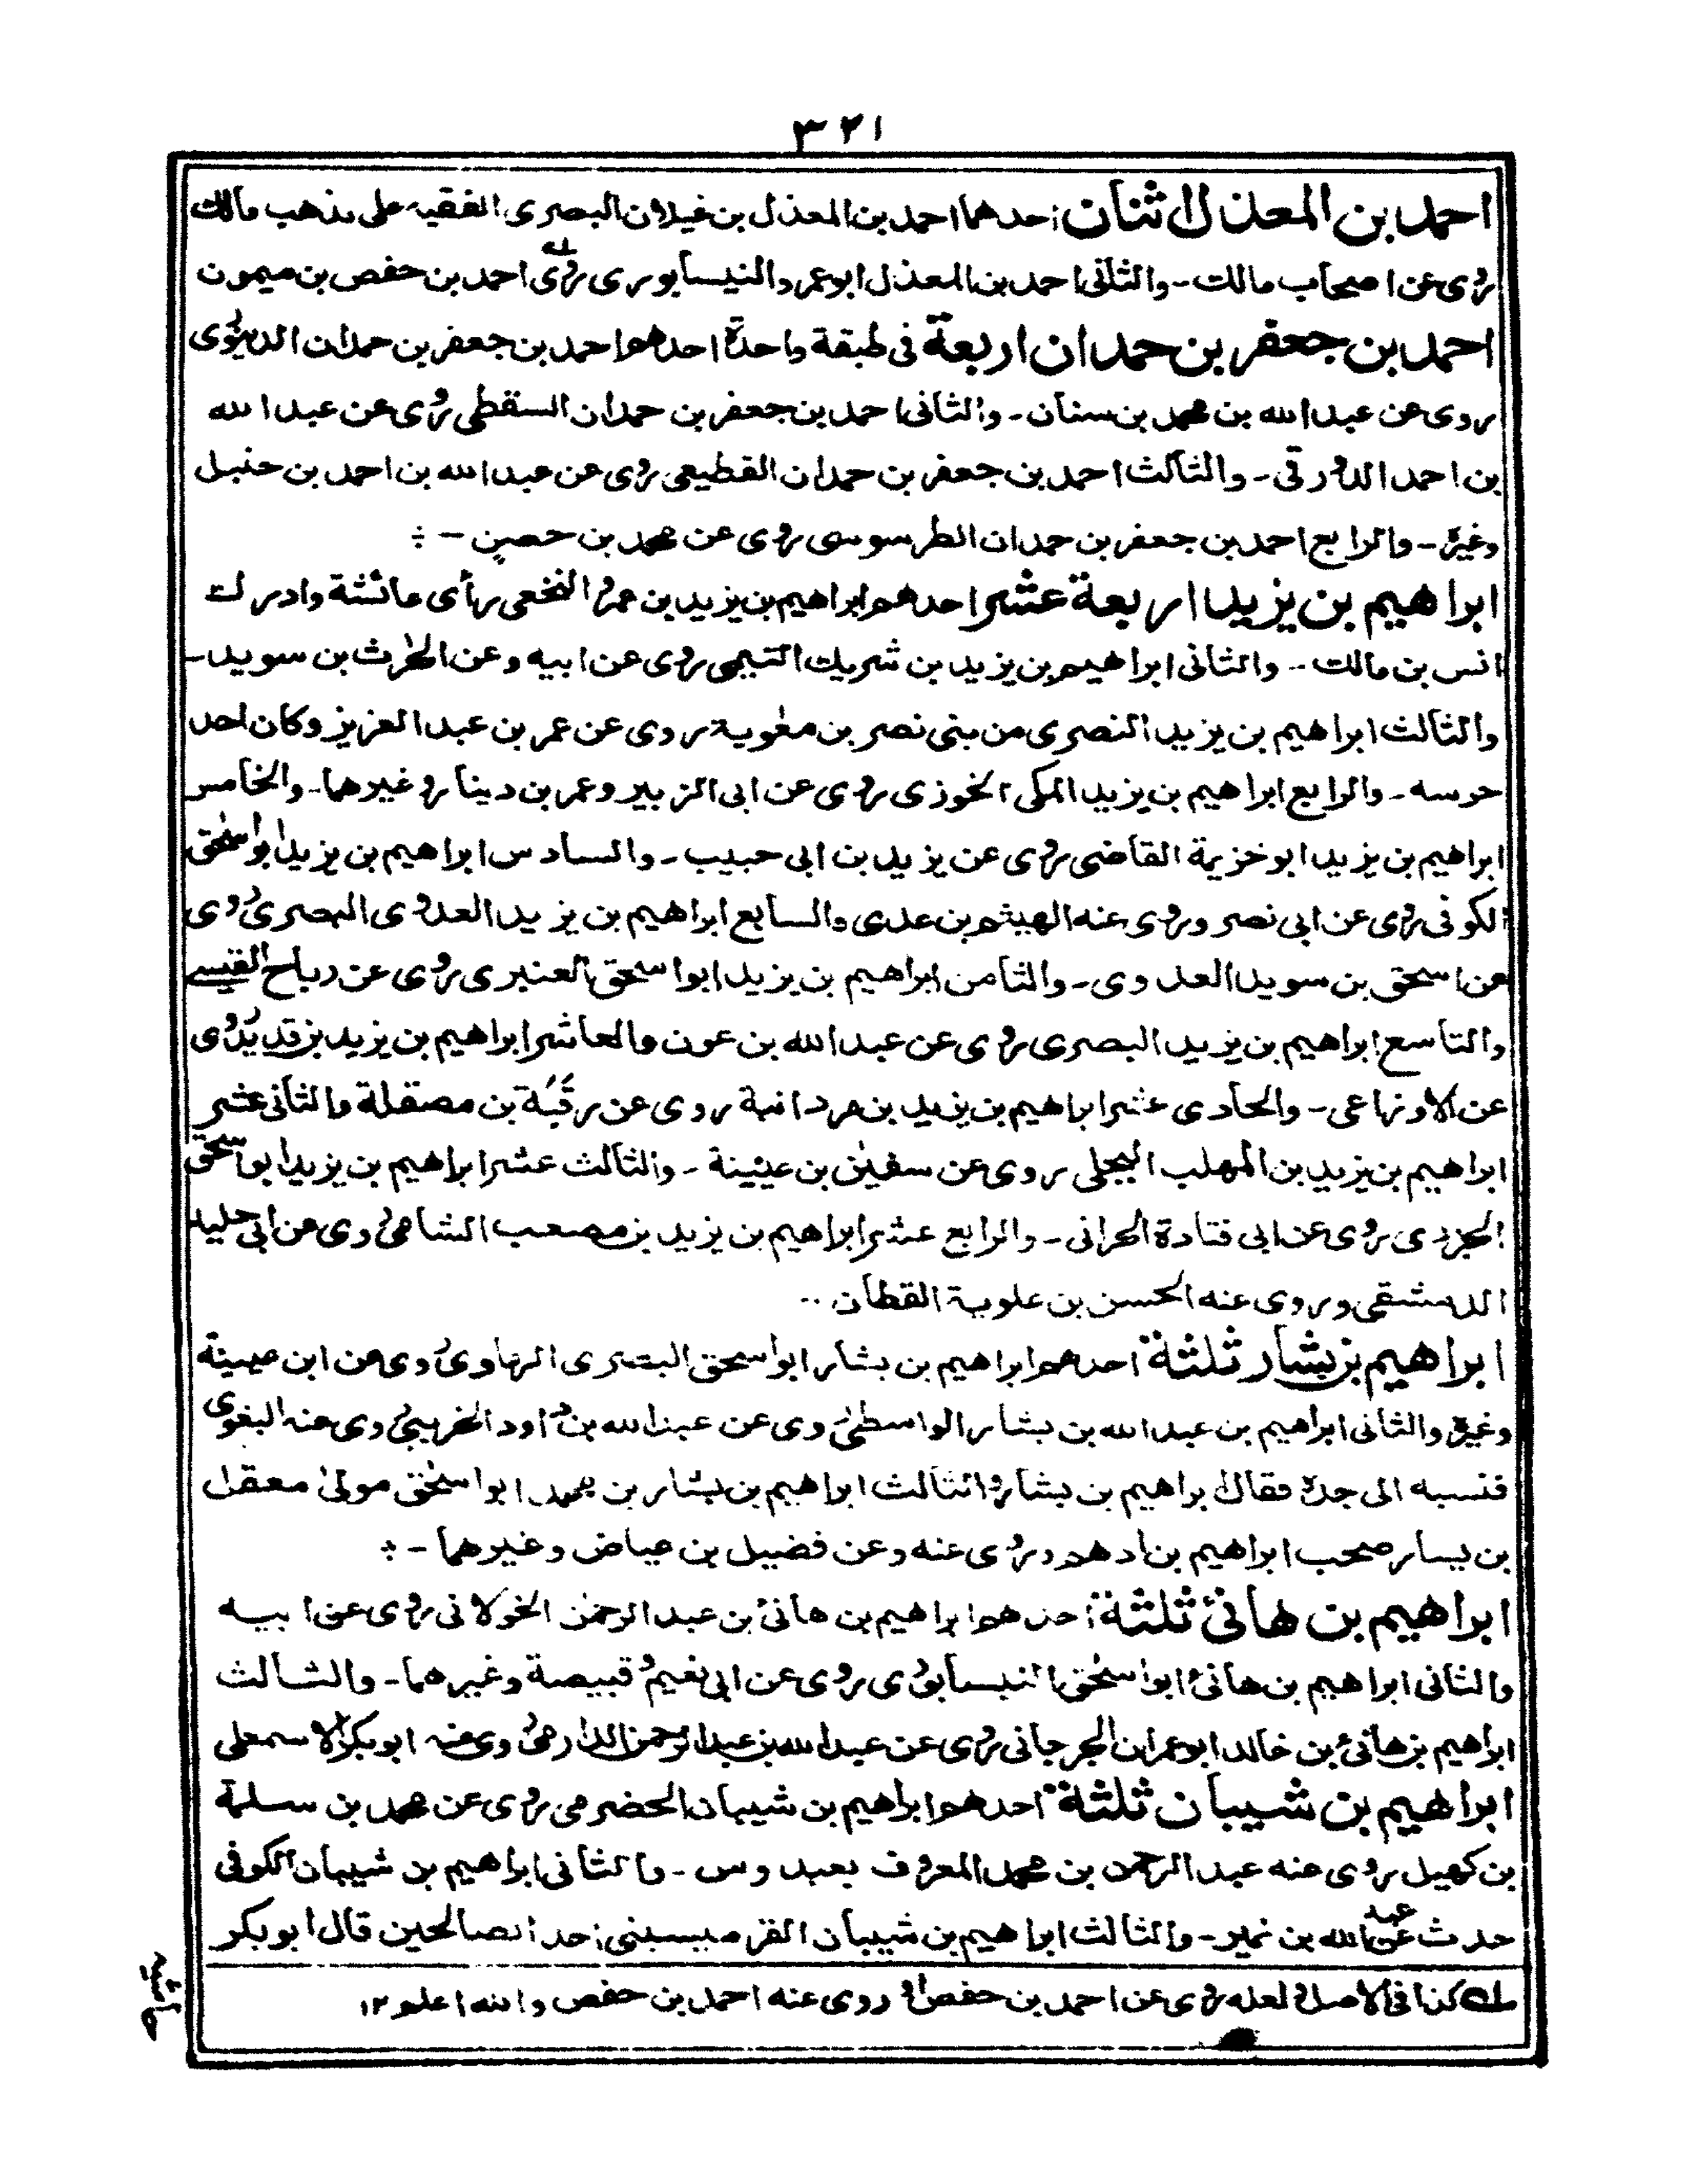 ٣٢١
احمد بن المعذل اثنان احدهما احمد بن المعذل بن غيلان البصرى الفقيه على مذهب مالك
روى عن اصحاب مالك - والثانى احمد بن المعذل ابو عمرو النيسابورى روى له احمد بن حفص بن ميمون
احمد بن جعفر بن حمدان اربعة فى طبقة واحدة احدهم احمد بن جعفر بن حمدان الدينورى
روى عن عبد الله بن محمد بن سنان - والثانى احمد بن جعفر بن حمدان السقطى روى عن عبد الله
بن احمد الدورقى - والثالث احمد بن جعفر بن حمدان القطيعى روى عن عبد الله بن احمد بن حنبل
وغيره - والرابع احمد بن جعفر بن حمدان الطرسوسى روى عن محمد بن حصين -
ابراهيم بن يزيد اربعة عشر احدهم ابراهيم بن يزيد بن عمرو النخعى رأى عائشة وادرك
انس بن مالك - والثانى ابراهيم بن يزيد بن شريك التيمى روى عن ابيه وعن الحرث بن سويد -
والثالث ابراهيم بن يزيد النصرى من بنى نصر بن معوية روى عن عمر بن عبد العزيز وكان احد
حرسه - والرابع ابراهيم بن يزيد المكى الخوزى روى عن ابى الزبير وعمر بن دينار وغيرهما - والخامس
ابراهيم بن يزيد ابو خزيمة القاضى روى عن يزيد بن ابى حبيب - والسادس ابراهيم بن يزيد ابو اسحق
الكوفى روى عن ابى نصر وروى عنه الهيثم بن عدى والسابع ابراهيم بن يزيد العدوى البصرى روى
عن اسحق بن سويد العدوى - والثامن ابراهيم بن يزيد ابو اسحق العنبرى روى عن رباح القيسى
والتاسع ابراهيم بن يزيد البصرى روى عن عبد الله بن عون والعاشر ابراهيم بن يزيد بن قديد روى
عن الاوزاعى - والحادى عشر ابراهيم بن يزيد بن مردانبة روى عن رقبة بن مصقلة والثانى عشر
ابراهيم بن يزيد بن المهلب البجلى روى عن سفين بن عيينة - والثالث عشر ابراهيم بن يزيد ابو اسحق
الجزرى روى عن ابى قتادة الحرانى - والرابع عشر ابراهيم بن يزيد بن مصعب الشامى روى عن ابى خليد
الدمشقى وروى عنه الحسن بن علوية القطان -
ابراهيم بن بشار ثلثة احدهم ابراهيم بن بشار ابو اسحق البصرى الرمادى روى عن ابن عيينة
وغيره والثانى ابراهيم بن عبد الله بن بشار الواسطى روى عن عبد الله بن داود الخريبى روى عنه البغوى
فنسبه الى جده فقال ابراهيم بن بشار والثالث ابراهيم بن بشار بن محمد ابو اسحق مولى معقل
بن يسار صحب ابراهيم بن ادهم وروى عنه وعن فضيل بن عياض وغيرهما -
ابراهيم بن هانئ ثلثة احدهم ابراهيم بن هانئ بن عبد الرحمن الخولانى روى عن ابيه
والثانى ابراهيم بن هانئ ابو اسحق النيسابورى روى عن ابى نعيم وقبيصة وغيرهما - والثالث
ابراهيم بن هانئ بن خالد ابو عمران الجرجانى روى عن عبد الله بن عبد الرحمن الدارمى روى عنه ابو بكر الاسمعلى
ابراهيم بن شيبان ثلثة احدهم ابراهيم بن شيبان الحضرمى روى عن محمد بن سلمة
بن كهيل روى عنه عبد الرحمن بن محمد المعروف بعبدوس - والثانى ابراهيم بن شيبان الكوفى
حدث عن عبد الله بن نمير - والثالث ابراهيم بن شيبان القرميسينى احد الصالحين قال ابو بكر
له كذا فى الاصل ولعله روى عن احمد بن حفص او روى عنه احمد بن حفص والله اعلم ١٢
حاشيه